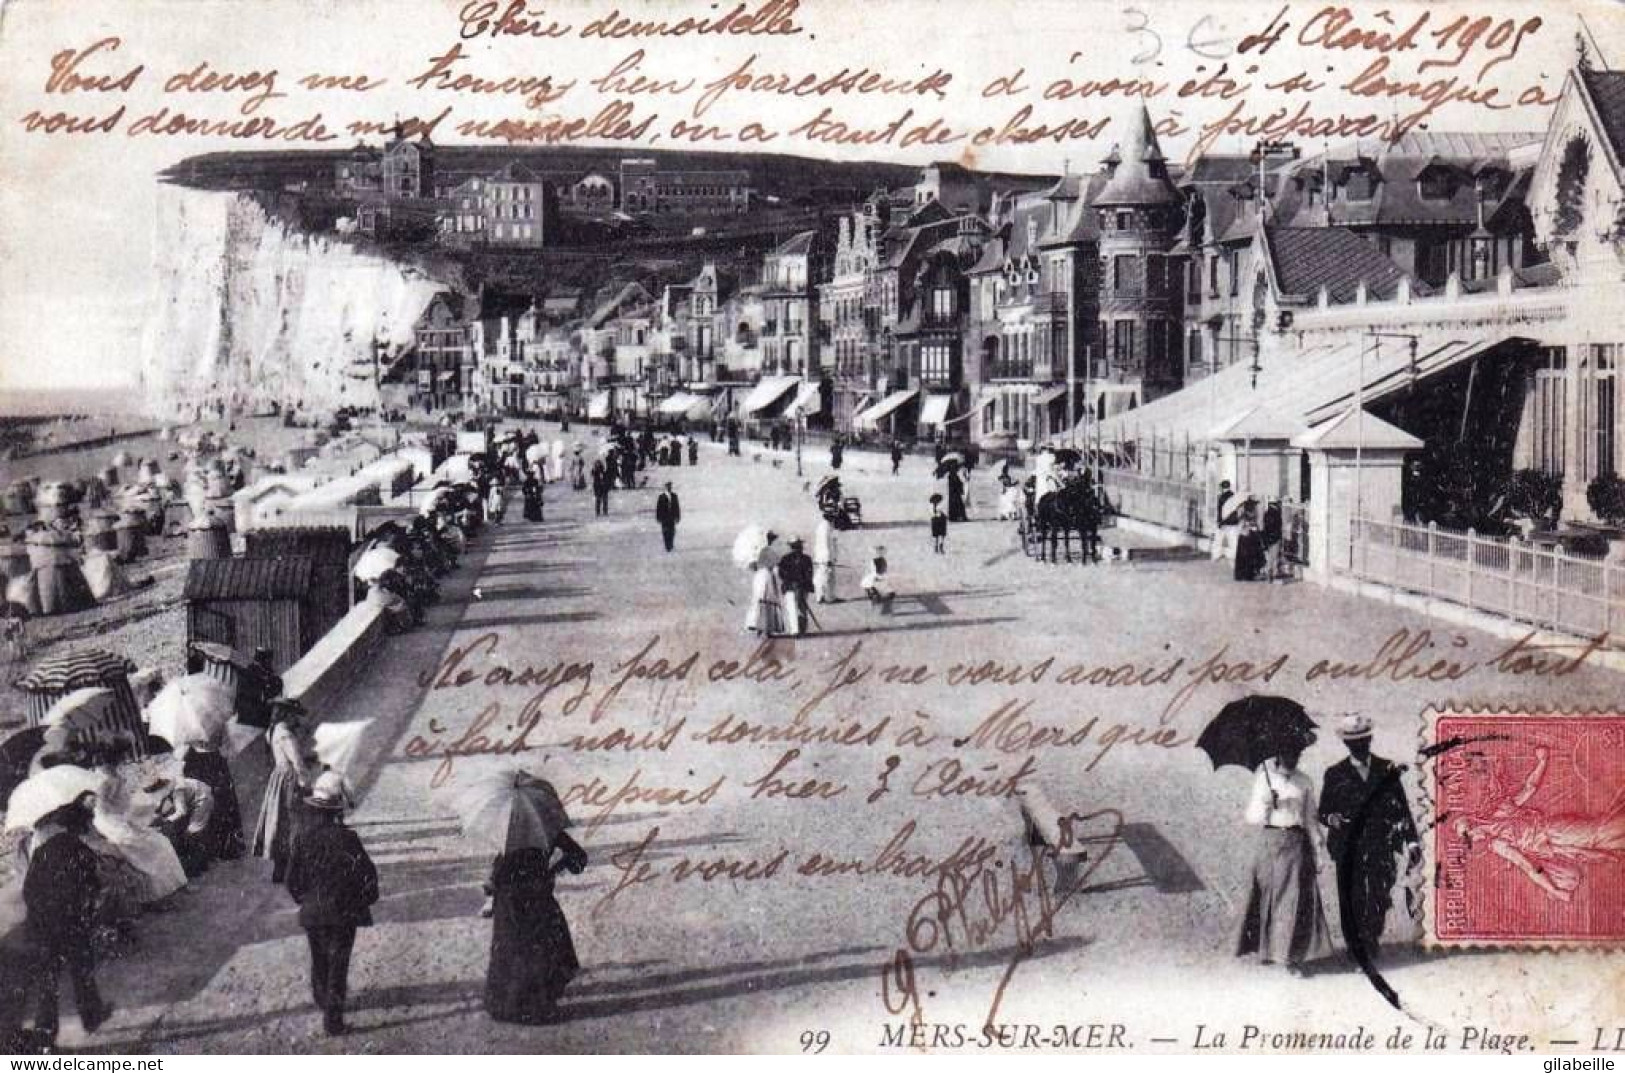 Chère demoiselle.
4 Août 1905
Vous devez me trouvez bien paresseuse d'avoir été si longue à
vous donner de mes nouvelles, on a tant de choses à préparer.
Ne croyez pas cela, je ne vous avais pas oubliée tout
à fait nous sommes à Mers que
depuis hier 3 Août
Je vous embrasse.
G. Philippon
REPUBLIQUE FRANÇAI
99 MERS-SUR-MER. — La Promenade de la Plage. — LL
gilabeille